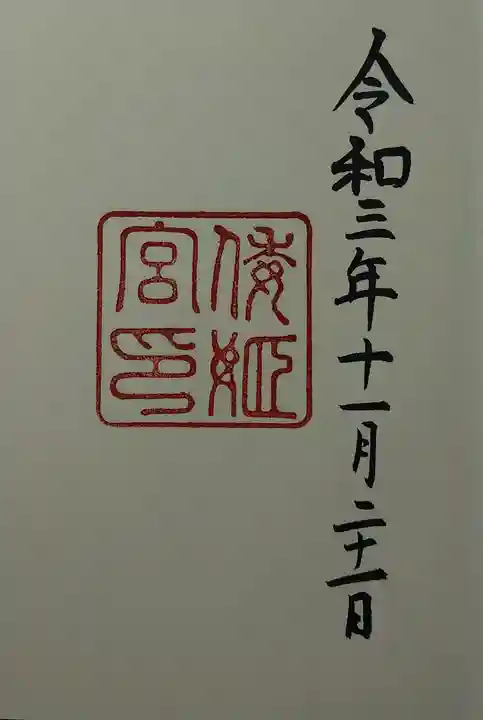 令和三年十一月二十一日
倭姫
宮印